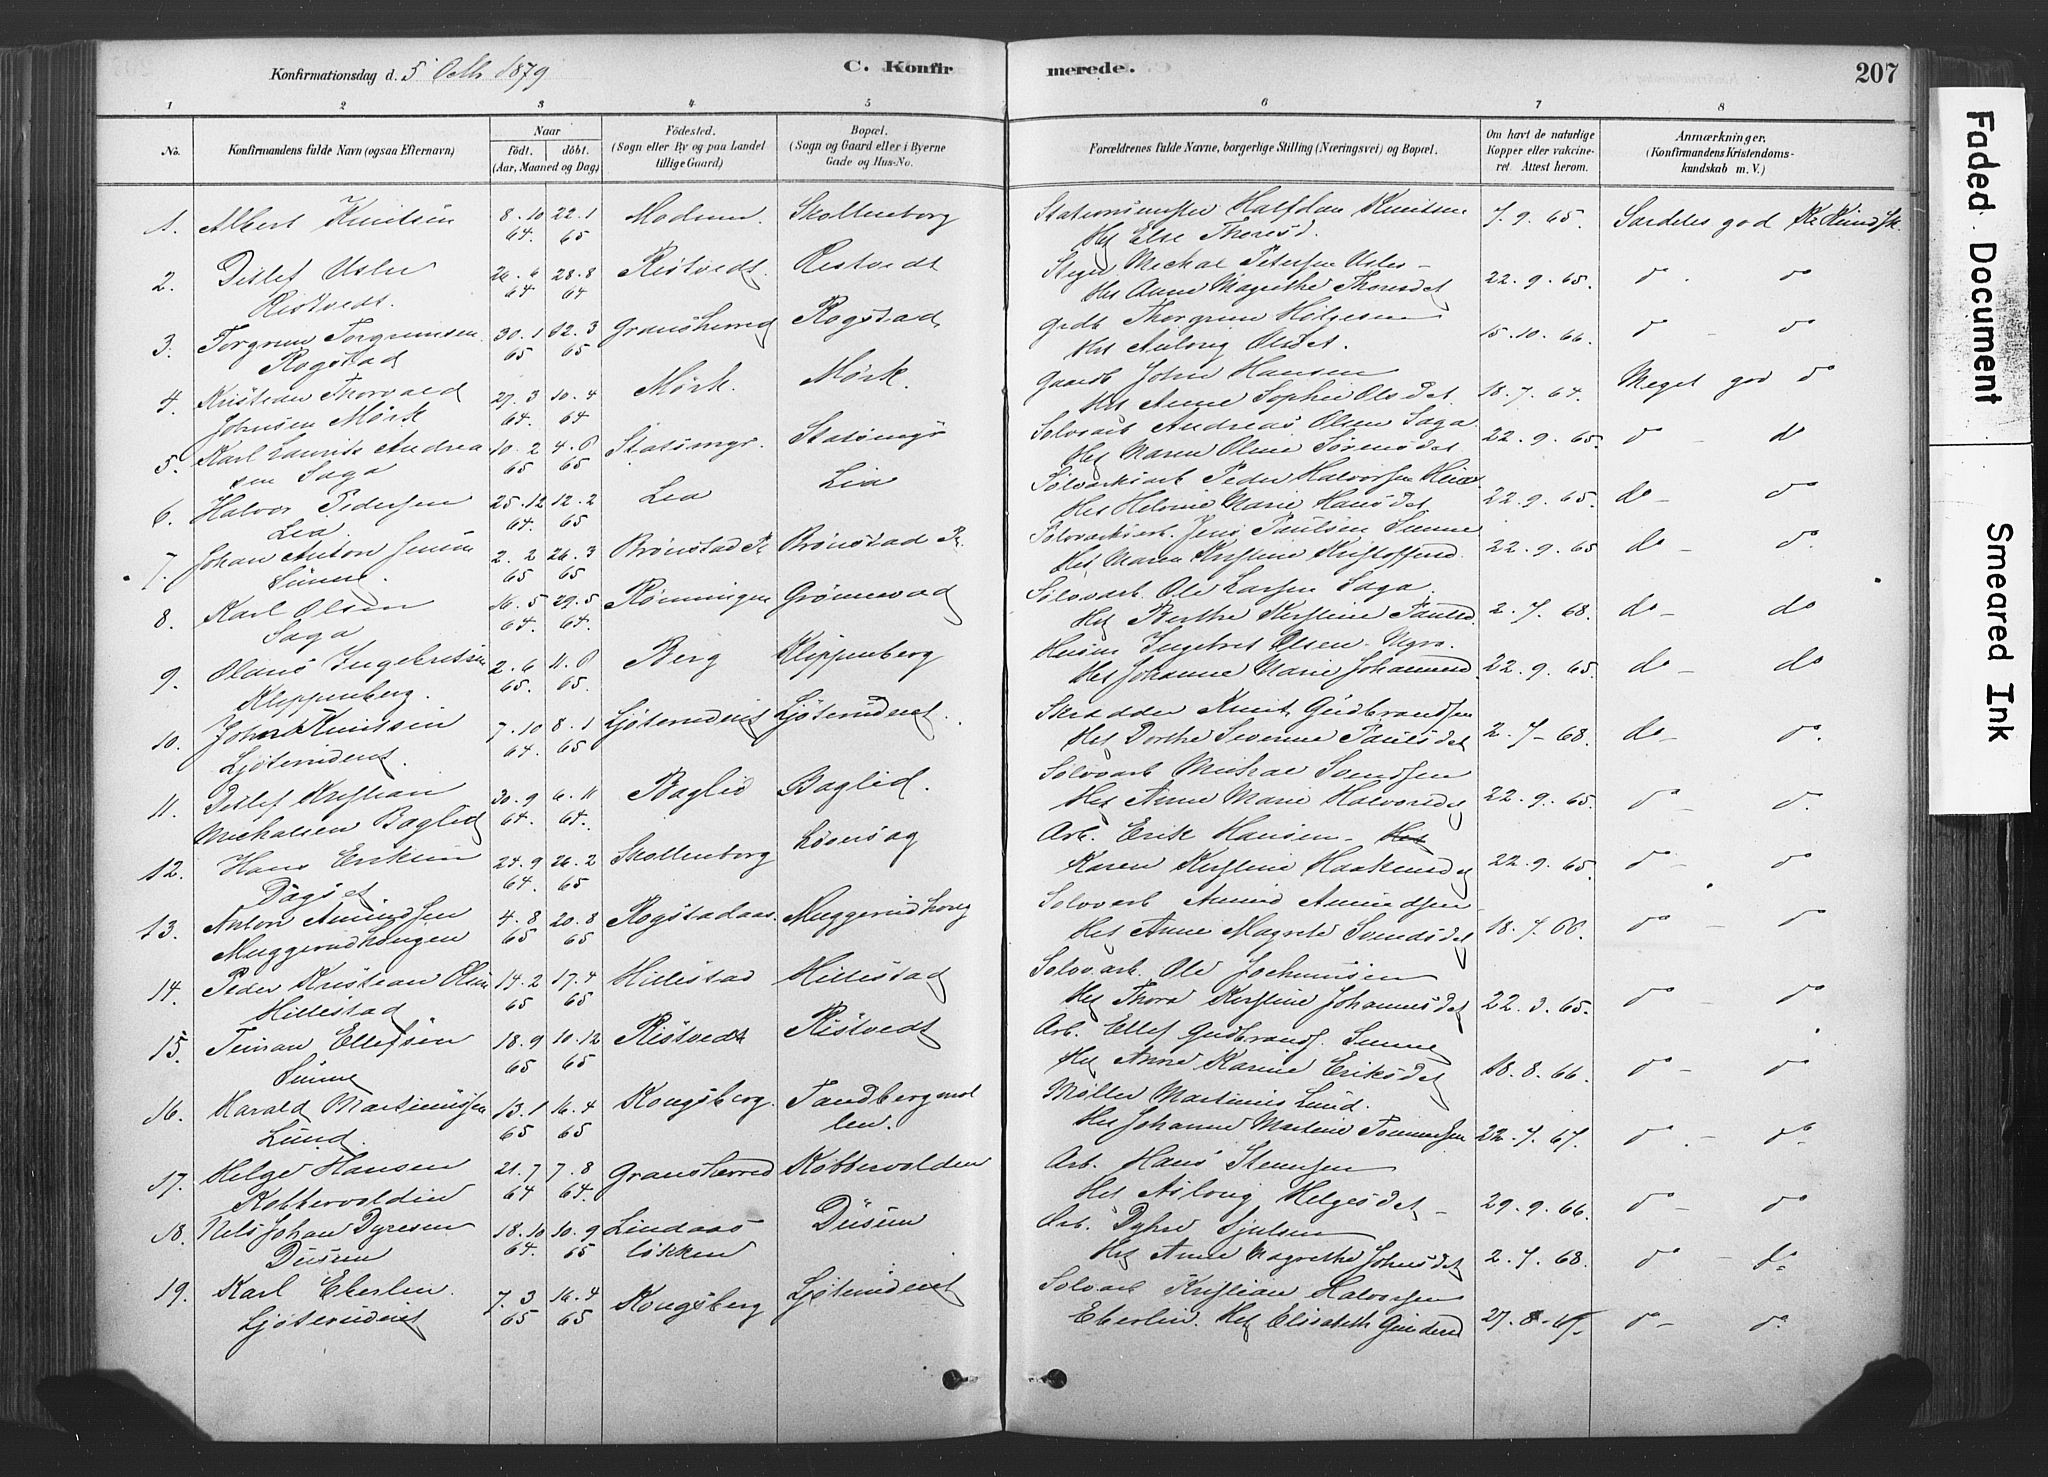 Konfirmationsdag d. 5 Octbr 1879
C. Konfirmerede.
207
1 2 3 4 5 6 7 8
No.
Konfirmandens fulde Navn (ogsaa Efternavn)
Naar
födt. döbt.
(Aar, Maaned og Dag)
Födested.
(Sogn eller By og paa Landet
tillige Gaard)
Bopæl.
(Sogn og Gaard eller i Byerne
Gade og Hus-No.
Forældrenes fulde Navne, borgerlige Stilling (Næringsvei) og Bopæl.
Om havt de naturlige
Kopper eller vakcine-
ret. Attest herom.
Anmærkninger.
(Konfirmandens Kristendoms-
kundskab m. V.)
1. Albert Knutsen 8.10 64 22.1 65 Modum. Skollenborg Stationsmester Halfdan Knutsen
Hst Else Thoresd. 7.9.65. Særdeles god Kr. Kundsk.
2. Ditlef Usler Ristvedt. 26.6 64 28.8 64 Ristvedt. Ristvedt Stiger Michael Petersen Usler
Hst Anne Magrethe Thoresdet 22.9.65. do do
3. Torgrim Torgrimsen Rogstad 30.1 65 12.3 65 Gransherred Rogstad Grdb Thorgrim Helgesen
Hst Aslong Olsdet. 15.10.66. do - do
4. Kristian Thorvald Johnsen Mörk 27.3 64 10.4 64 Mörk. Mörk. Gaardb John Hansen
Hst Anne Sophie Olsdet 18.7.64. Meget god do
5. Karl Laurits Andreasen Saga 10.2 65 65 Statsmyr. Statsmyr Sölvarb Andreas Olsen Saga
Hst Maren Oline Sörensdet 22.9.65. do - do
6. Halvor Pedersen Lia. 25.12 64. 12.2 65 Lia Lia Sölvarksarb Peder Halvorsen
Hst Helvine Marie Hansdet 22.9.65. do - do
7. Johan Anton Jensen Sünne. 2.2 65 26.3 65 Brönstad Pl Brönstad Pl. Sölvarksarb. Jens Paulsen Sunne
Hst Maren Kirstine Kristoffersd. 22.9.65 do - do.
8. Karl Olsen Saga 16.5 64. 29.5 64. Rönningen Grönnevad Sölvarb Ole Larsen Saga.
Hst Berthe Kirstine Paulsd. 2.7.68. do - do
9. Olaus Ingebretsen Klippenberg. 2.6 65. 65. Berg Klippenberg Husm Ingebret Olsen.
Hst Johanne Marie Johannesd. 22.9.65. do - do
10. John Knutsen Ljöterudeiet. 7.10 64. 8.1 65 Ljöterudeiet Ljöterudeiet. Skrædder Knut Gudbrandsen
Hst Dorthe Severine Paulsdet 2.7-68. do - do.
11. Ditlef Kristian Michalsen Baglid 30.9 64. 6.11 64. Baglid Baglid. Sölvarb Michael Svendsen
Hst Anne Marie Halvorsdet 22.9.65. do - do.
12. Hans Eriksen 24.9 64. 26.2 65 Skollenborg Arb. Erik Hansen - Hst
Karen Kirstine Haakensdet 22.9.65. do - do
13. Anton Amundsen Muggerudkongen 4.8 65 20.8 65 Rogstadaas. Sölvarb Amund Amundsen
Hst Anne Magrete Svendsdet 18.7.66. do - do
14. Peder Kristian Olsen Hillestad 14.2 65 17.4 65 Hillestad Hillestad Sölvarb. Ole Jochumsen
Hst Thora Kirstine Johannesdet 22.3.65. do - do
15. Ellefsen Sünne 18.9 65 10.12 65 Ristvedt Ristvedt Arb. Ellef Gudbrands. Sunne
Hst Anne Karine Eriksdet 18.8.66. do - do
16. Harald Martiniussen Lund. 13.1 65 16.4 65 Kongsberg. Tandbergmöllen. Möller Martinius Lund.
Hst Johanne Martine 22.7.67. do - do
17. Helge Hansen Kobbervolden 21.7 64 7.8 64. Gransherred Kobbervolden Arb. Hans Stensen
Hst Aslong Helgesdet - 29.9.66. do - do
18. Nils Johan Dyresen Düsen 18.10 64. 10.9 65 Lindaas lökken Düsen Arb. Dyhre
Hst Anne Magrethe Johnsdet 2.7.68. do - do
19. Karl Eberlin. Ljöterudeiet 7.3 65 16.4 65 Kongsberg Ljöterudeiet Sölvarb Kristian Halvorsen
Eberlin. Hst Elisabeth 27.8-67. do - do.
Faded Document
Smeared Ink